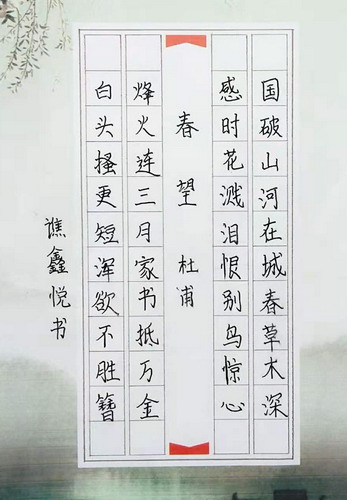 国破山河在城春草木深
感时花溅泪恨别鸟惊心
春望 杜甫
烽火连三月家书抵万金
白头搔更短浑欲不胜簪
谯鑫悦书